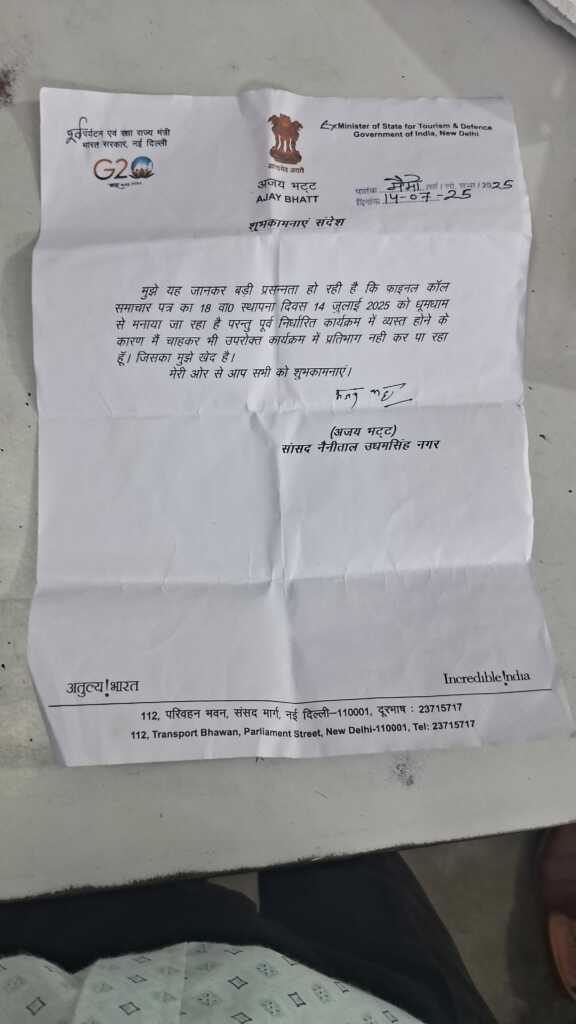 पूर्व पर्यटन एवं रक्षा राज्य मंत्री
भारत सरकार, नई दिल्ली
G20
सत्यमेव जयते
अजय भट्ट
AJAY BHATT
Ex Minister of State for Tourism & Defence
Government of India, New Delhi
मैमो 2025
दिनांक 14-07-25
शुभकामनाएं संदेश
मुझे यह जानकर बड़ी प्रसन्नता हो रही है कि फाइनल कॉल
समाचार पत्र का 18 वा0 स्थापना दिवस 14 जुलाई 2025 को धूमधाम
से मनाया जा रहा है परन्तु पूर्व निर्धारित कार्यक्रम में व्यस्त होने के
कारण मैं चाहकर भी उपरोक्त कार्यक्रम में प्रतिभाग नही कर पा रहा
हूँ। जिसका मुझे खेद है।
मेरी ओर से आप सभी को शुभकामनाएं।
(अजय भट्ट)
सांसद नैनीताल उधमसिंह नगर
अतुल्य!भारत
Incredible!ndia
112, परिवहन भवन, संसद मार्ग, नई दिल्ली–110001, दूरभाष : 23715717
112, Transport Bhawan, Parliament Street, New Delhi-110001, Tel: 23715717